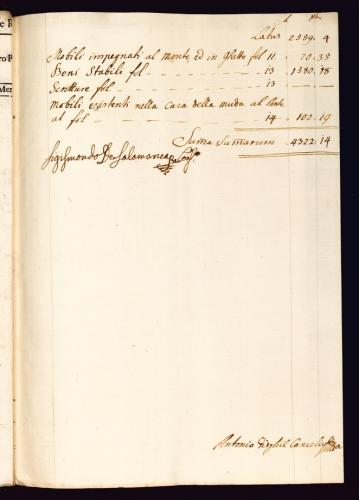 Latus 2339 4
Mobili impegnati al monte ed in ghetto fol 11 70 35
Beni Stabili fol 13 1380 18
Scritture fol 13
Mobili esistenti nella casa della muda al
al fol 14 102 19
Suma Sumarum 4322 14
Sigismondo De Salamanca
Antonio